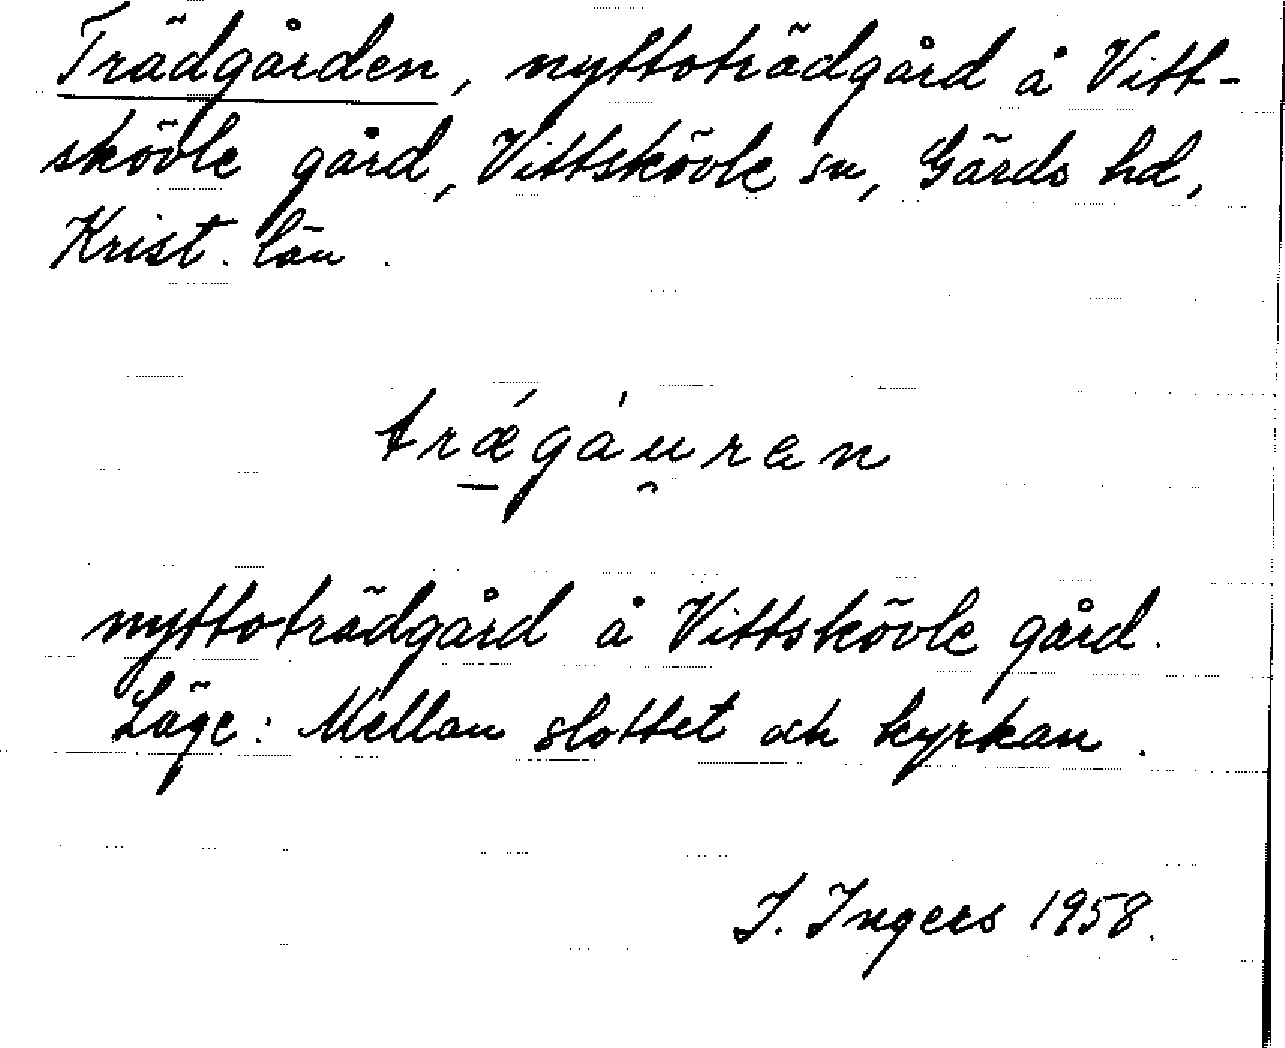 Trädgården, nyttoträdgård å Vitt-
skövle gård, Vittskövle sn, Gärds hd,
Krist. län.
trǽgáu̯ran
nyttoträdgård å Vittskövle gård.
Läge: Mellan slottet och kyrkan.
I. Ingers 1958.